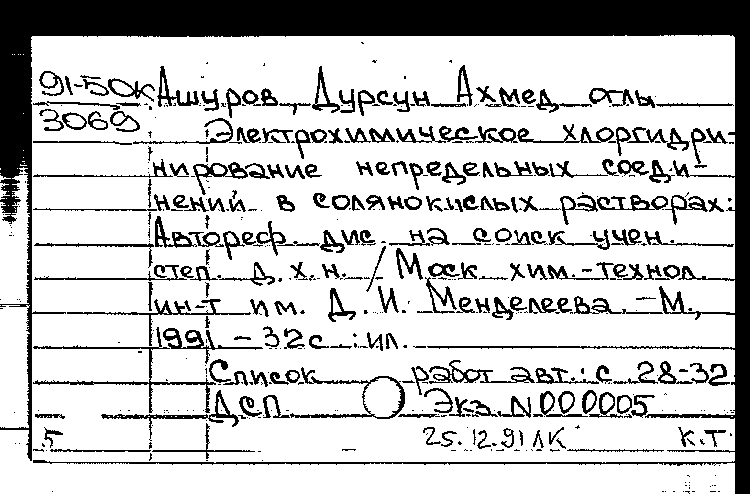 91-50К Ашуров, Дурсун Ахмед оглы
3069 Электрохимическое хлоргидри-
нирование непредельных соеди-
нений в солянокислых растворах:
Автореф. дис. на соиск учен.
степ. д.х.н. / Моск. хим.-технол.
ин-т им. Д. И. Менделеева. – М.,
1991. – 32с.: ил.
Список работ авт.: с 28-32
ДСП Экз. N000005
5 25.12.91 ЛК К.Т